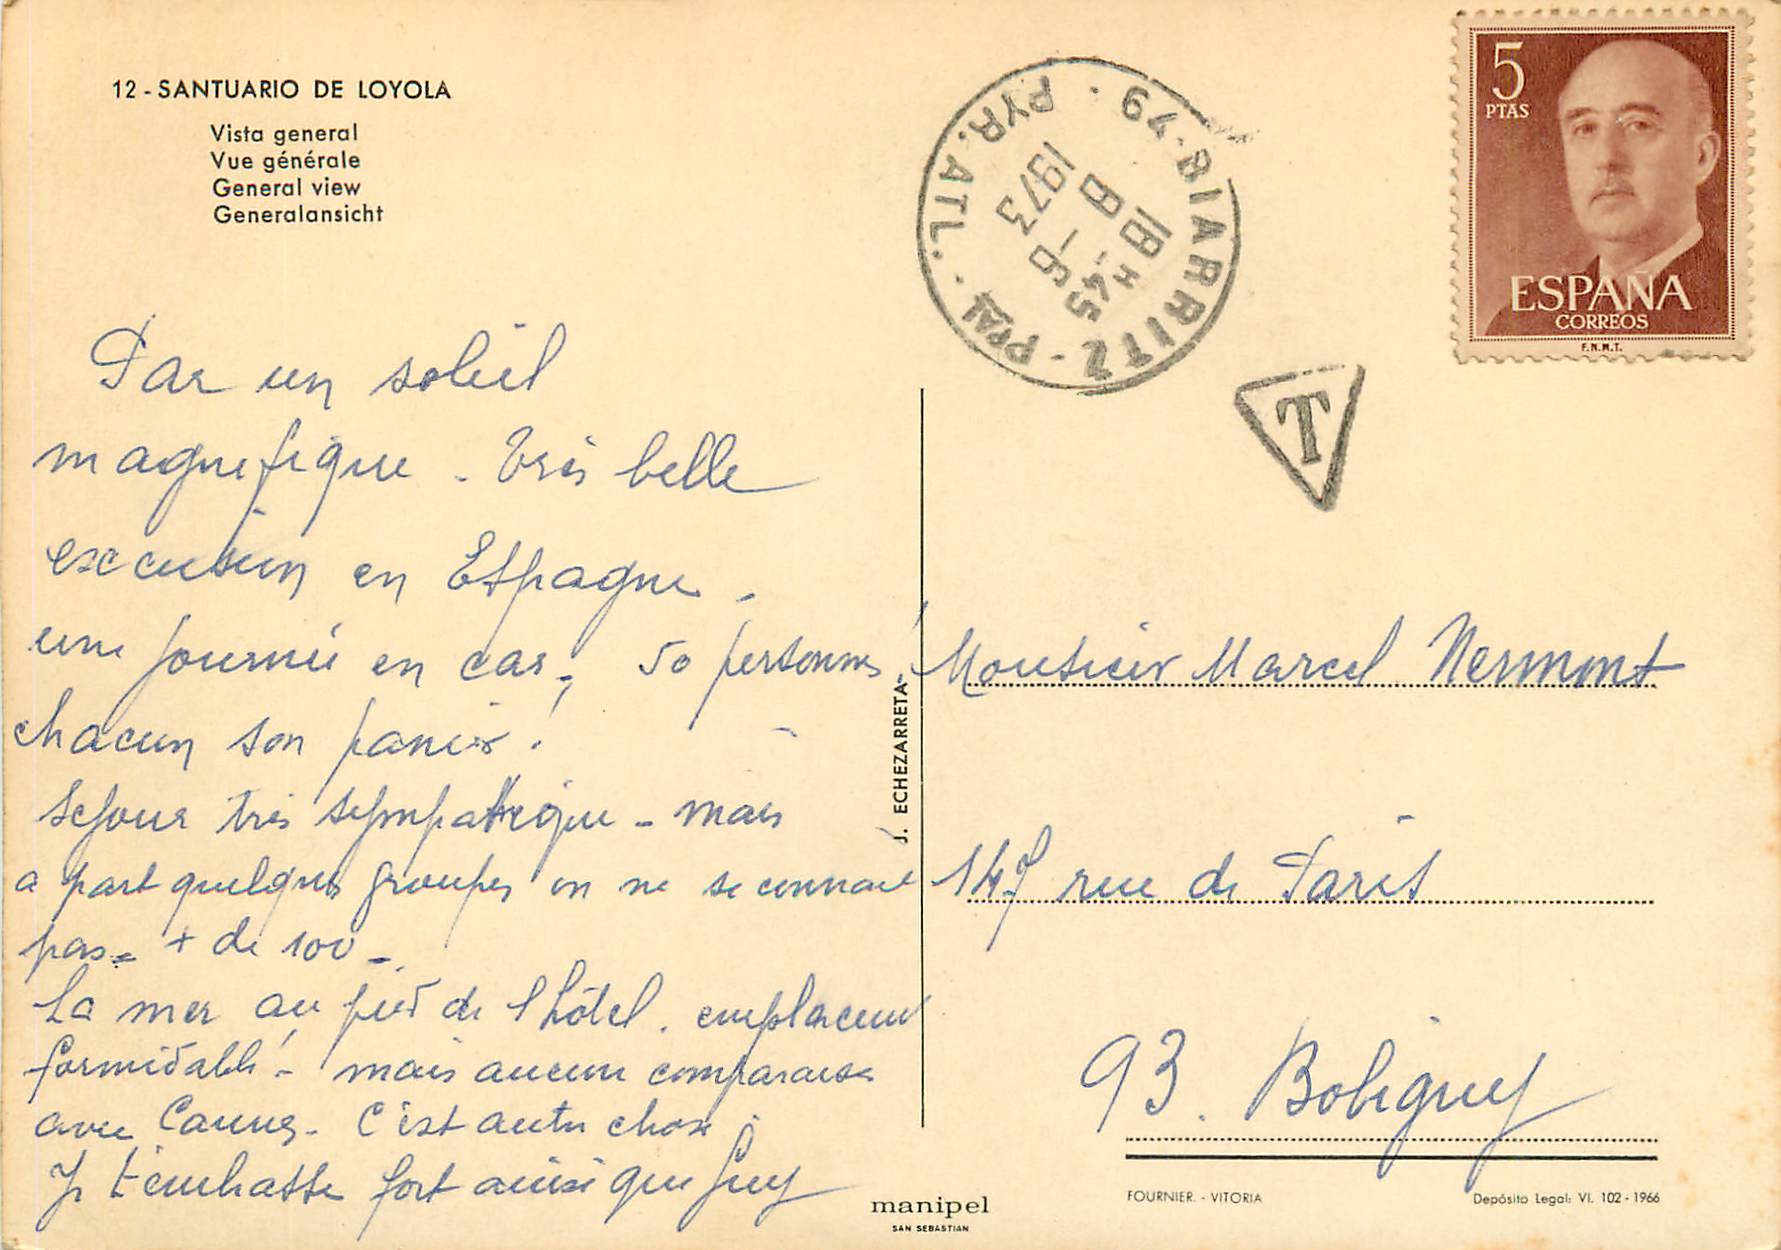 12 - SANTUARIO DE LOYOLA
Vista general
Vue générale
General view
Generalansicht
Par un soleil
magnifique - Très belle
excursion en Espagne -
une journée en car, 50 personnes
chacun son panier !
Sejour très sympathique - mais
a part quelques groupes on ne se connait
pas - + de 100 -
La mer au pied de l'hôtel. emplacement
formidable ! - mais aucune comparaison
avec Cannes - C'est autre chose.
Je t'embrasse fort ainsi que Guy
J. ECHEZARRETA
manipel
SAN SEBASTIAN
79 - BIARRITZ - PPAL - PYR. ATL.
18 H 45
6 - 6
1973
T
5
PTAS
ESPAÑA
CORREOS
F.N.M.T.
Monsieur Marcel Nermont
147 rue de Paris
93. Bobigny
FOURNIER. - VITORIA
Depósito Legal: VI. 102 - 1966